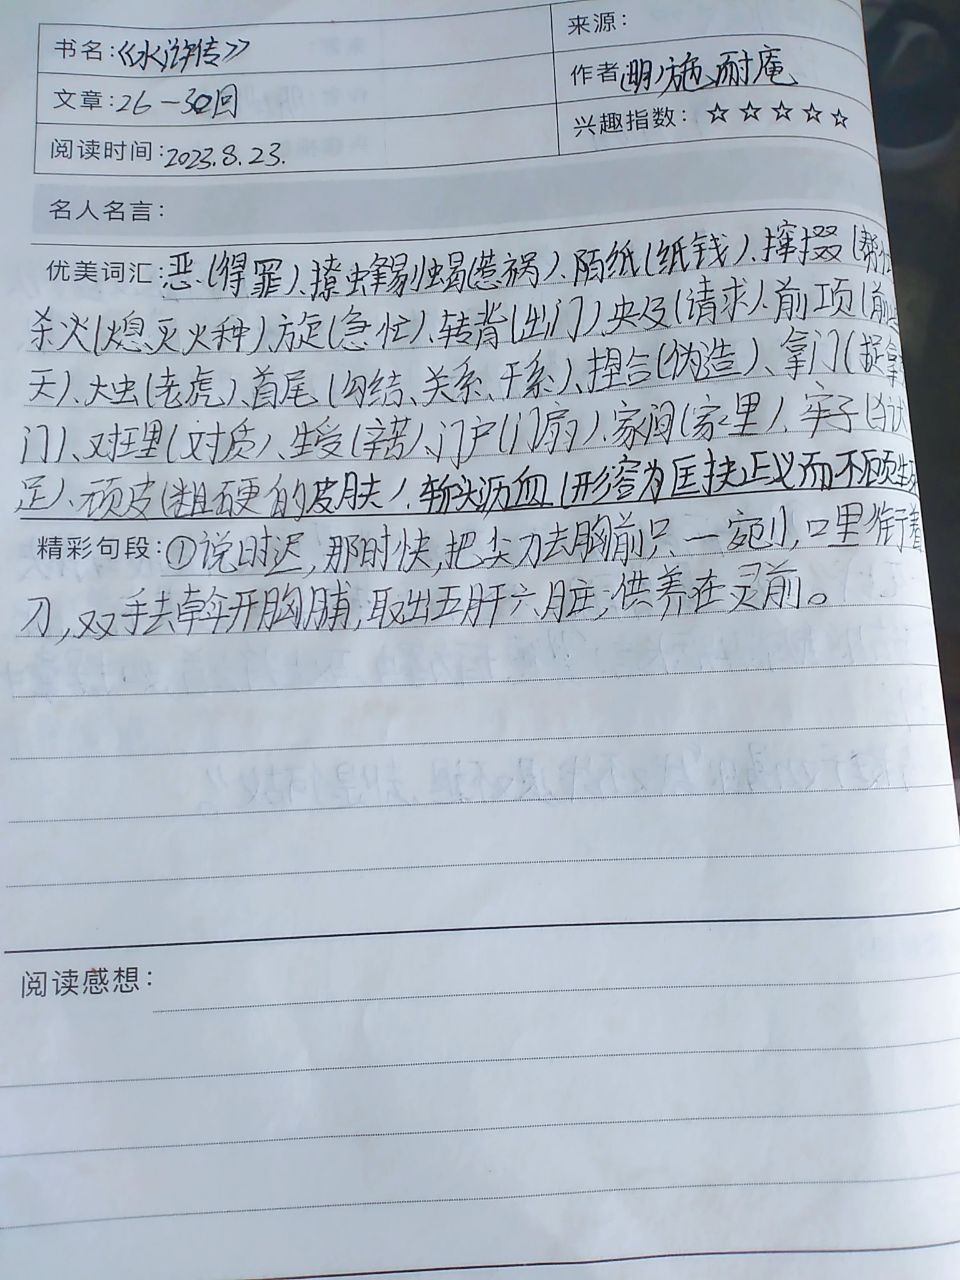 书名:《水浒传》
来源:
文章:26-30回
作者(明)施耐庵
阅读时间:2023.8.23.
兴趣指数:☆☆☆☆☆
名人名言:
优美词汇:恶(得罪)、撩蜂剔蝎(惹祸)、陌纸(纸钱)、撺掇(帮忙
杀火(熄灭火种)、旋(急忙)、转背(出门)、央及(请求)、前项(前些
天)、大虫(老虎)、首尾(勾结、关系、干系)、捏合(伪造)、拿门(捉拿
门)、对理(对质)、生受(辛苦)、门户(门扇)、家间(家里)、牢子(
足)、顽皮(粗硬的皮肤)、斩头沥血(形容为匡扶正义而不顾生死
精彩句段:①说时迟,那时快,把尖刀去胸前只一剜,口里衔着
刀,双手去斡开胸脯,取出五肝六脏,供养在灵前。
阅读感想: